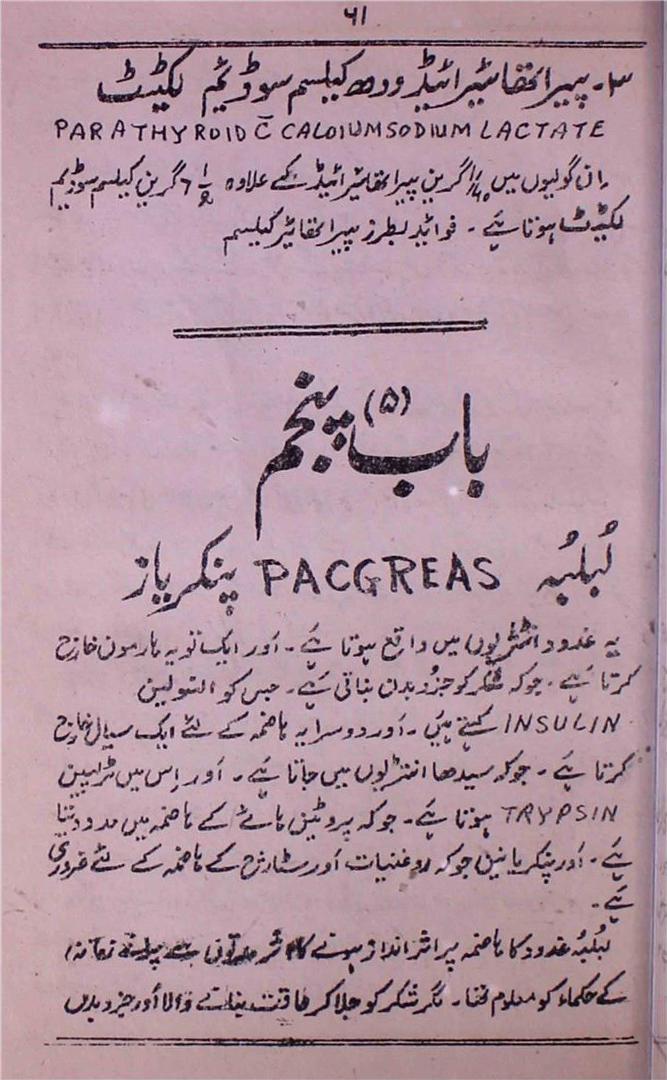 ۶۱
۳۔ پیرا تھائیرائیڈ ودھ کیلسم سوڈیم لکٹیٹ
PARATHYROID C̄ CALOIUMSODIUM LACTATE
ان گولیوں میں ۱/۴۰ گرین پیرا تھائیرائیڈ کے علاوہ گرین کیلسم سوڈیم
لکٹیٹ ہوتا ہے۔ فوائد بطرز پیرا تھائیر کیلسم
باب (۵) پنجم
لُبلبُہ PACGREAS پنکریاز
یہ غدود انتڑیوں میں واقع ہوتا ہے۔ اور ایک تو یہ ہارمون خارج
کرتا ہے۔ جو کہ شکر کو جزُو بدن بناتی ہے۔ جس کو انسولین
INSULIN کہتے ہیں۔ اور دوسرا یہ ہاضمہ کے لئے ایک سیال خارج
کرتا ہے۔ جو کہ سیدھا انتڑیوں میں جاتا ہے۔ اور اِس میں ٹرپسین
TRYPSIN ہوتا ہے۔ جو کہ پروٹین مادے کے ہاضمہ میں مدد دیتا
ہے۔ اور پنکریانین جو کہ روغنیات اور سٹارش کے ہاضمہ کے لئے ضروری
ہے۔
لبلبُہ غدود کا ہاضمہ پر اثر انداز ہونے کا اثر مدتوں سے پرانے زمانہ
کے حکماء کو معلوم تھا۔ مگر شکر کو جلا کر طاقت بنانے والا اور جزو بدن